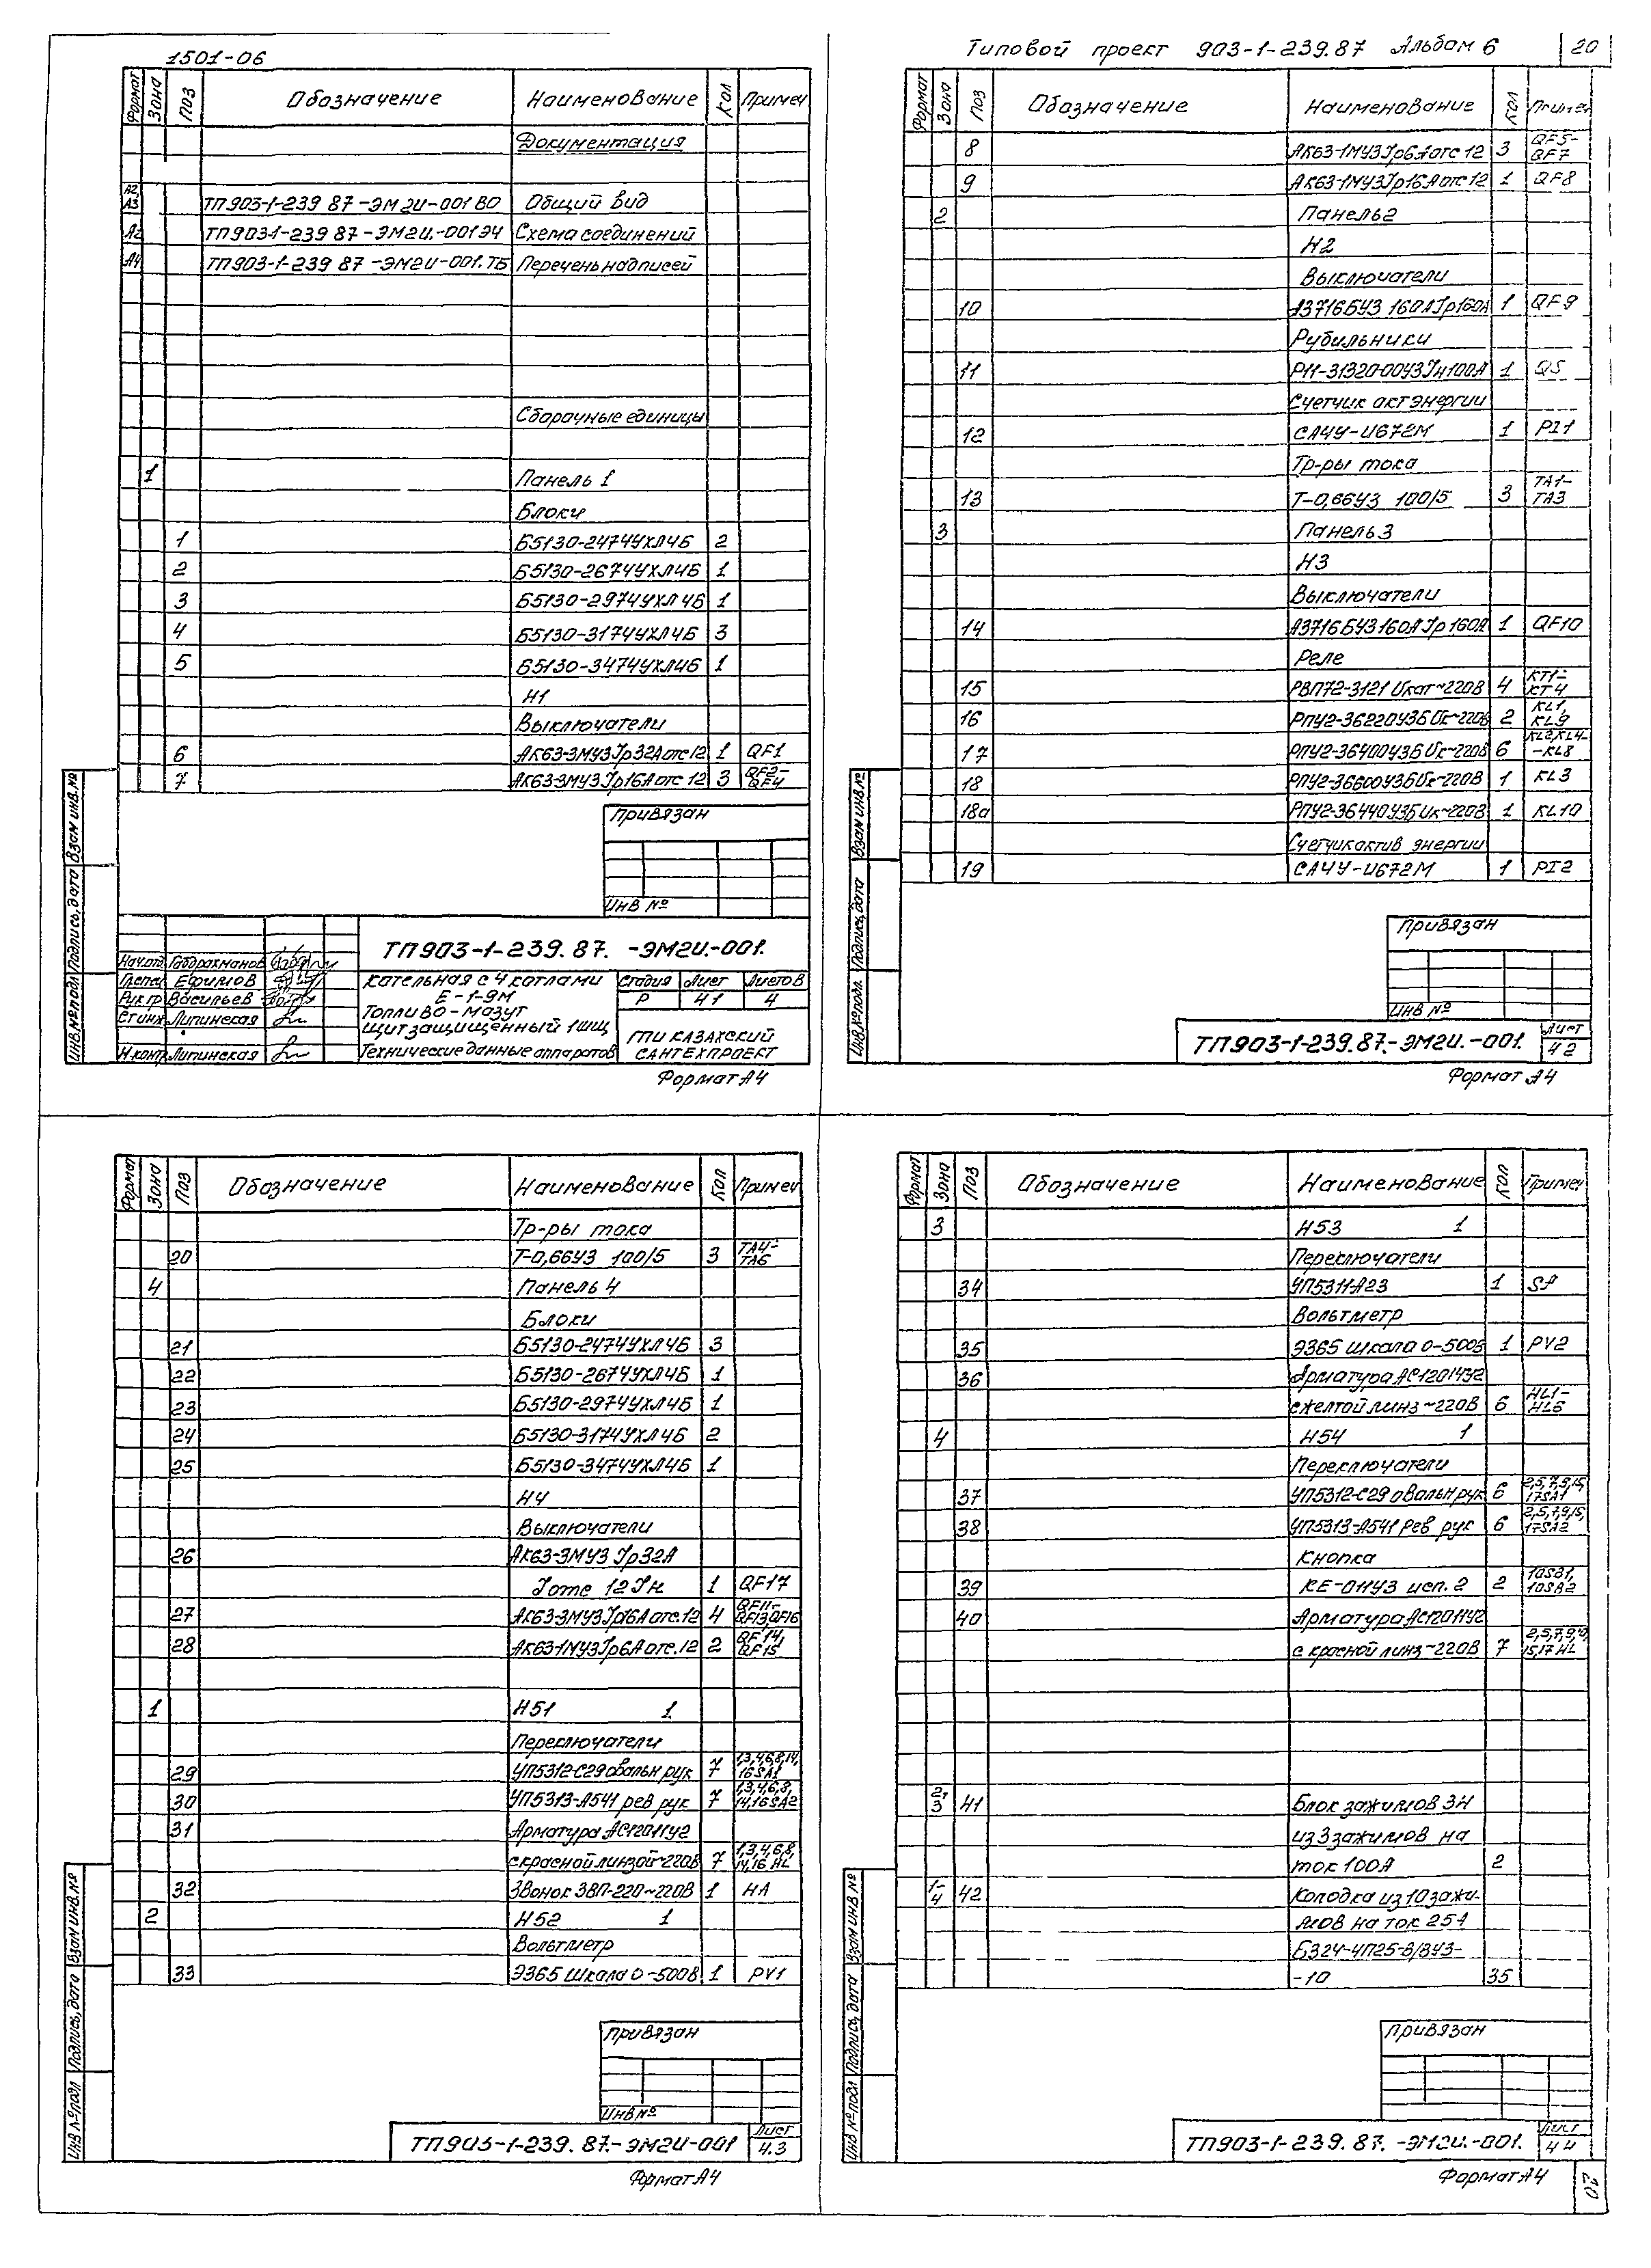 1501-06
Формат Зона Поз Обозначение Наименование Кол Примеч
Документация
А2 А3 ТП903-1-239 87-ЭМ2И-001 ВО Общий вид
А2 ТП903-1-239 87-ЭМ2И.-001Э4 Схема соединений
А4 ТП903-1-239 87-ЭМ2И-001.ТБ Перечень надписей
Сборочные единицы
1 Панель 1
Блоки
1 Б5130-2474УХЛ4Б 2
2 Б5130-2674УХЛ4Б 1
3 Б5130-2974УХЛ4Б 1
4 Б5130-3174УХЛ4Б 3
5 Б5130-3474УХЛ4Б 1
Н1
Выключатели
6 АК63-3МУ3Jр32Аотс12 1 QF1
7 АК63-3МУ3Jр16Аотс 12 3 QF2-QF4
Привязан
ИНВ №
ТП903-1-239.87. -ЭМ2И.-001.
Нач.отд Габдрахманов
Глспец Ефимов
Рук гр Васильев
Ст инж Липинская
Н.контр Липинская
Котельная с 4 котлами
Е-1-9М
Топливо-мазут
Щит защищенный 1ШЩ
Технические данные аппаратов
Стадия Лист Листов
Р 4 1 4
ГПИ КАЗАХСКИЙ
САНТЕХПРОЕКТ
Инв.№ подл Подпись, дата Взам инв.№
Формат А4
Типовой проект 903-1-239.87 Альбом 6 20
Формат Зона Поз Обозначение Наименование Кол Примеч
8 АК63-1МУ3Jр6Аотс 12 3 QF5-QF7
9 АК63-1МУ3Jр16Аотс12 1 QF8
2 Панель2
Н2
Выключатели
10 А3716БУ3 160АJр160А 1 QF9
Рубильники
11 Р11-31320-00У3Jн100А 1 QS
Счетчик акт энергии
12 СА4У-И672М 1 PI1
Тр-ры тока
13 Т-0,66У3 100/5 3 ТА1-ТА3
3 Панель3
Н3
Выключатели
14 А3716БУ3160АJр160А 1 QF10
Реле
15 РВП72-3121 Uкат~220В 4 КТ1-КТ4
16 РПУ2-36220У3Б Uк~220В 2 KL1, KL9
17 РПУ2-36400У3Б Uк~220В 6 KL2,KL4--KL8
18 РПУ2-36600У3БUк~220В 1 KL3
18а РПУ2-36440У3Б Uк~220В 1 KL10
Счетчик актив энергии
19 СА4У-И672М 1 PI2
Привязан
ИНВ №
ТП903-1-239.87.-ЭМ2И.-001.
Лист
4 2
Инв.№ подл. Подпись, дата Взам инв.№
Формат А4
Формат Зона Поз Обозначение Наименование Кол Примеч
Тр-ры тока
20 Т-0,66У3 100/5 3 ТА4-ТА6
4 Панель 4
Блоки
21 Б5130-2474УХЛ4Б 3
22 Б5130-2674УХЛ4Б 1
23 Б5130-2974УХЛ4Б 1
24 Б5130-3174УХЛ4Б 2
25 Б5130-3474УХЛ4Б 1
Н4
Выключатели
26 АК63-3МУ3 Jр32А
Jотс 12 Jн 1 QF17
27 АК63-3МУ3Jр16А отс.12 4 QF11-QF13,QF16
28 АК63-1МУ3Jр6А отс.12 2 QF14, QF15
1 Н51 1
Переключатели
29 УП5312-С29 овальн рук 7 1,3,4,6,8,14, 16SA1
30 УП5313-А541 рев рук 7 1,3,4,6,8, 14,16 SA2
31 Арматура АС12011У2
с красной линзой~220В 7 1,3,4,6,8, 14,16 HL
32 Звонок ЗВП-220~220В 1 НА
2 Н52 1
Вольтметр
33 Э365 шкала 0-500В 1 PV1
Привязан
ИНВ №
ТП903-1-239.87.-ЭМ2И-001
Лист
4.3
Инв №подл Подпись, дата Взам инв №
Формат А4
Формат Зона Поз Обозначение Наименование Кол Примеч
3 Н53 1
Переключатели
34 УП5311-А23 1 SA
Вольтметр
35 Э365 шкала 0-500В 1 PV2
36 Арматура АС12014У2
с желтой линз~220В 6 HL1-HL6
4 Н54 1
Переключатели
37 УП5312-С29 овальн рук 6 2,5,7,9,15, 17SA1
38 УП5313-А541 Рев рук 6 2,5,7,9,15, 17SA2
Кнопка
39 КЕ-011У3 исп. 2 2 10SB1, 10SB2
40 Арматура АС12011У2
с красной линз~220В 7 2,5,7,9,10, 15,17 HL
2, 3 41 Блок зажимов ЗН
из 3 зажимов на
ток 100А 2
1-4 42 Колодка из 10 зажи-
мов на ток 25А
Б324-4П25-В/ВУ3-
-10 35
Привязан
ТП903-1-239.87.-ЭМ2И.-001.
Лист
4 4
Инв №подл Подпись, дата Взам инв №
Формат А4
20